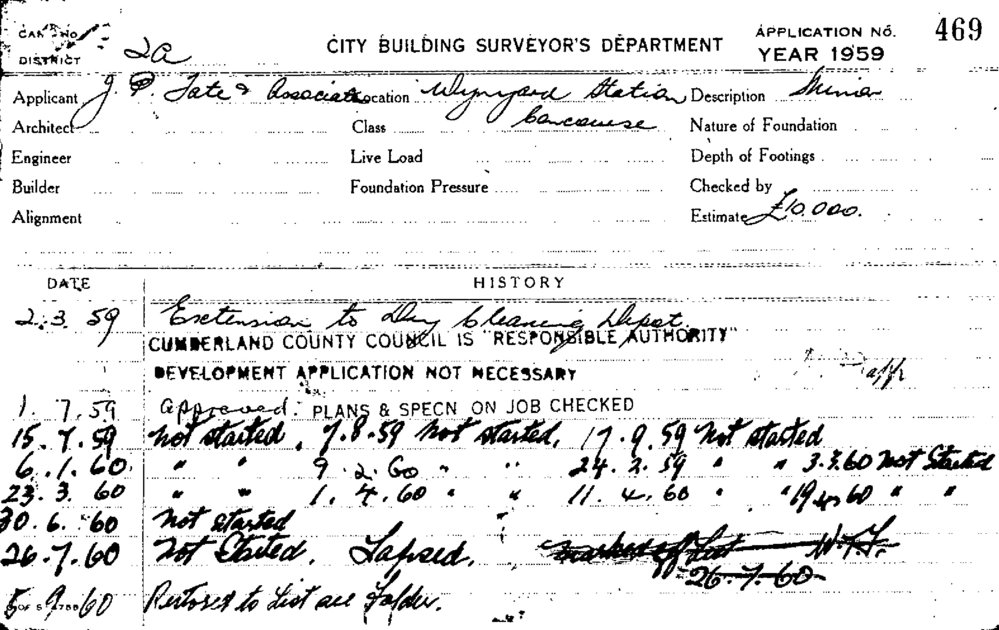 CARD No
DISTRICT 2a
CITY BUILDING SURVEYOR'S DEPARTMENT
APPLICATION No. 469
YEAR 1959
Applicant J. P. Tate & Associates Location Wynyard Station Description Minor
Architect Class Concourse Nature of Foundation
Engineer Live Load Depth of Footings
Builder Foundation Pressure Checked by
Alignment Estimate £10.000.
DATE HISTORY
2.3.59 Extension to Dry Cleaning Depot
CUMBERLAND COUNTY COUNCIL IS "RESPONSIBLE AUTHORITY"
DEVELOPMENT APPLICATION NOT NECESSARY
1.7.59 Approved. PLANS & SPECN ON JOB CHECKED
15.7.59 Not started, 7.8.59 Not started, 17.9.59 Not started
6.1.60. " " 9.2.60 " " 24.2.59 " " 3.3.60 Not Started
23.3.60 " " 1.4.60 " " 11.4.60 " " 19 60 " "
30.6.60 Not started
26.7.60 Not Started. Lapsed. marked off List W.F.
26-7-60
5.9.60 Restored to List see Folder.